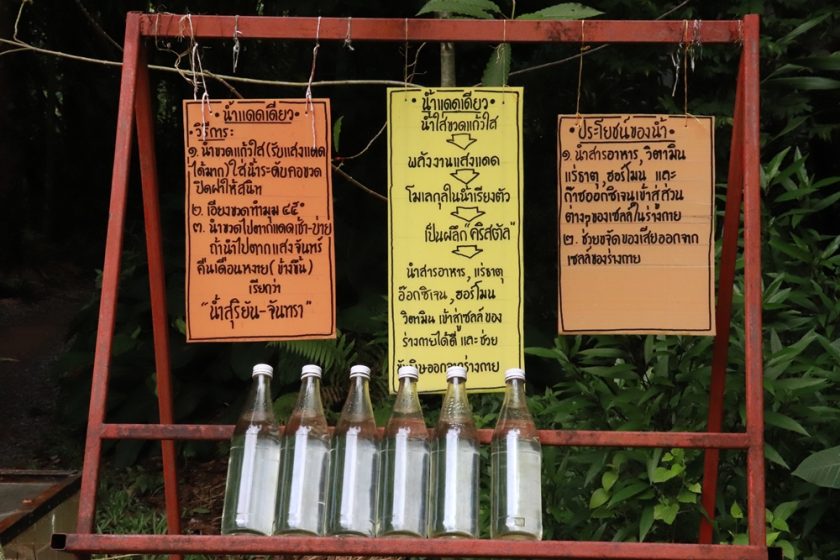 น้ำแดดเดียว
วิธีการ:
๑. นำขวดแก้วใส(รับแสงแดด
ได้มาก)ใส่น้ำระดับคอขวด
ปิดฝาให้สนิท
๒. เอียงขวดทำมุม ๔๕°
๓. นำขวดไปตากแดดเช้า-บ่าย
ถ้านำไปตากแสงจันทร์
คืนเดือนหงาย(ข้างขึ้น)
เรียกว่า
"น้ำสุริยัน-จันทรา"
• น้ำแดดเดียว •
น้ำใส่ขวดแก้วใส
พลังงานแสงแดด
โมเลกุลในน้ำเรียงตัว
เป็นผลึก"คริสตัล"
นำสารอาหาร, แร่ธาตุ
อ๊อกซิเจน, ฮอร์โมน
วิตามิน เข้าสู่เซลล์ของ
ร่างกายได้ดี และช่วย
ออกจากร่างกาย
• ประโยชน์ของน้ำ •
๑. นำสารอาหาร, วิตามิน
แร่ธาตุ, ฮอร์โมน และ
ก๊าซออกซิเจนเข้าสู่ส่วน
ต่างๆของเซลล์ในร่างกาย
๒. ช่วยขจัดของเสียออกจาก
เซลล์ของร่างกาย